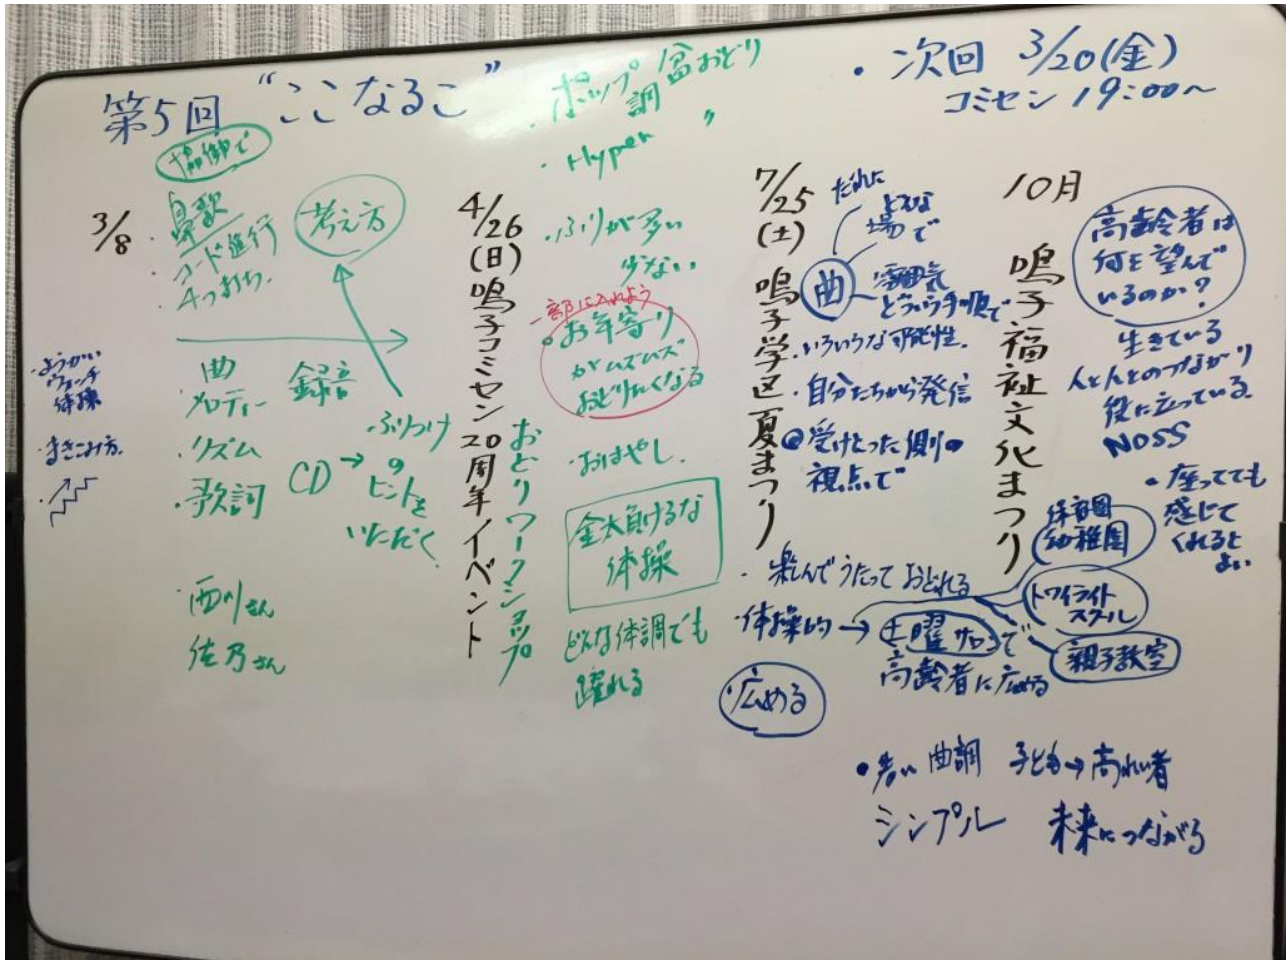 第5回 “ここなるこ”
・次回 3/20(金)
コミセン 19:00〜
3/8
協働で
・鼻歌
・コード進行
・4つ打ち.
考え方
・ようかい
ウォッチ
体操
・まきこみ方.
・曲
メロディー
・リズム
・歌詞
録音
CD→
ふりつけ
の
ヒントを
いただく
・西川さん
佐乃さん
4/26
(日)
鳴子コミセン20周年イベント
おどりワークショップ
・ポップ調 盆おどり
・Hyper 〃
・ふりが多い
少ない
一部に入れよう
・お年寄り
がムズムズ
おどりたくなる
・おはやし.
金太負けるな
体操
どんな体調でも
躍れる
7/25
(土)
鳴子学区夏まつり
だれに
どんな
場で
曲
雰囲気
どういう手順で
・いろいろな可能性.
・自分たちから発信
受けとった側の
視点で
・楽しんでうたっておどれる
・体操的→土曜サロンで
高齢者に広める
広める
10月
鳴子福祉文化まつり
高齢者は
何を望んで
いるのか?
生きている
人と人とのつながり
役に立っている.
NOSS
・座ってても
感じて
くれると
よい
保育園
幼稚園
トワイライト
スクール
親子教室
・若い曲調 子ども→高れい者
シンプル 未来につながる